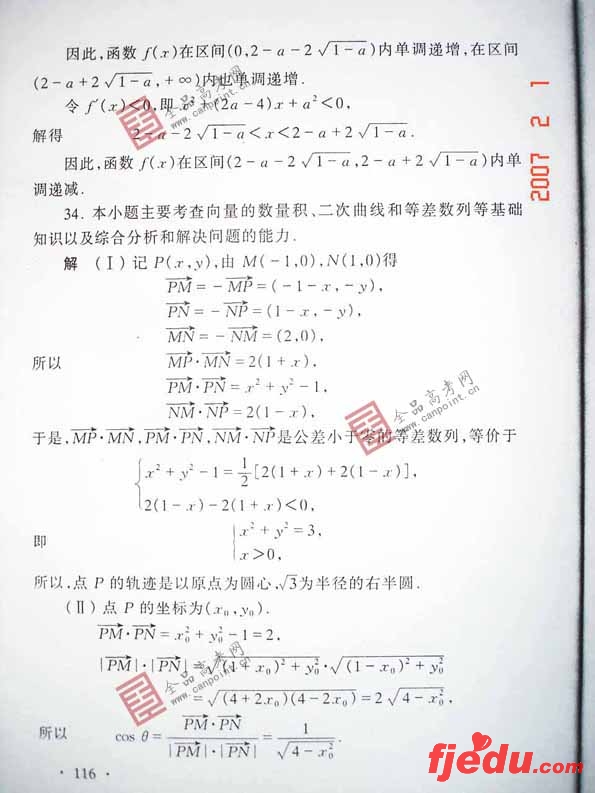 因此,函数 f(x)在区间(0,2-a-2√(1-a))内单调递增,在区间
(2-a+2√(1-a),+∞)内也单调递增.
令 f′(x)<0,即 x²+(2a-4)x+a²<0,
解得 2-a-2√(1-a)<x<2-a+2√(1-a).
因此,函数 f(x)在区间(2-a-2√(1-a),2-a+2√(1-a))内单
调递减.
34. 本小题主要考查向量的数量积、二次曲线和等差数列等基础
知识以及综合分析和解决问题的能力.
解 (Ⅰ)记 P(x,y),由 M(-1,0),N(1,0)得
PM=-MP=(-1-x,-y),
PN=-NP=(1-x,-y),
MN=-NM=(2,0),
所以 MP·MN=2(1+x),
PM·PN=x²+y²-1,
NM·NP=2(1-x),
于是,MP·MN,PM·PN,NM·NP是公差小于零的等差数列,等价于
x²+y²-1=1/2[2(1+x)+2(1-x)],
2(1-x)-2(1+x)<0,
即 x²+y²=3,
x>0,
所以,点 P 的轨迹是以原点为圆心,√3为半径的右半圆.
(Ⅱ)点 P 的坐标为(x₀,y₀).
PM·PN=x₀²+y₀²-1=2,
|PM|·|PN|=√((1+x₀)²+y₀²)·√((1-x₀)²+y₀²)
=√((4+2x₀)(4-2x₀))=2√(4-x₀²),
所以 cos θ=PM·PN/(|PM|·|PN|)=1/√(4-x₀²).
·116·
2007 2 1
全品高考网
www.canpoint.cn
全品高考网
www.canpoint.cn
全品高考网
www.canpoint.cn
fjedu.com